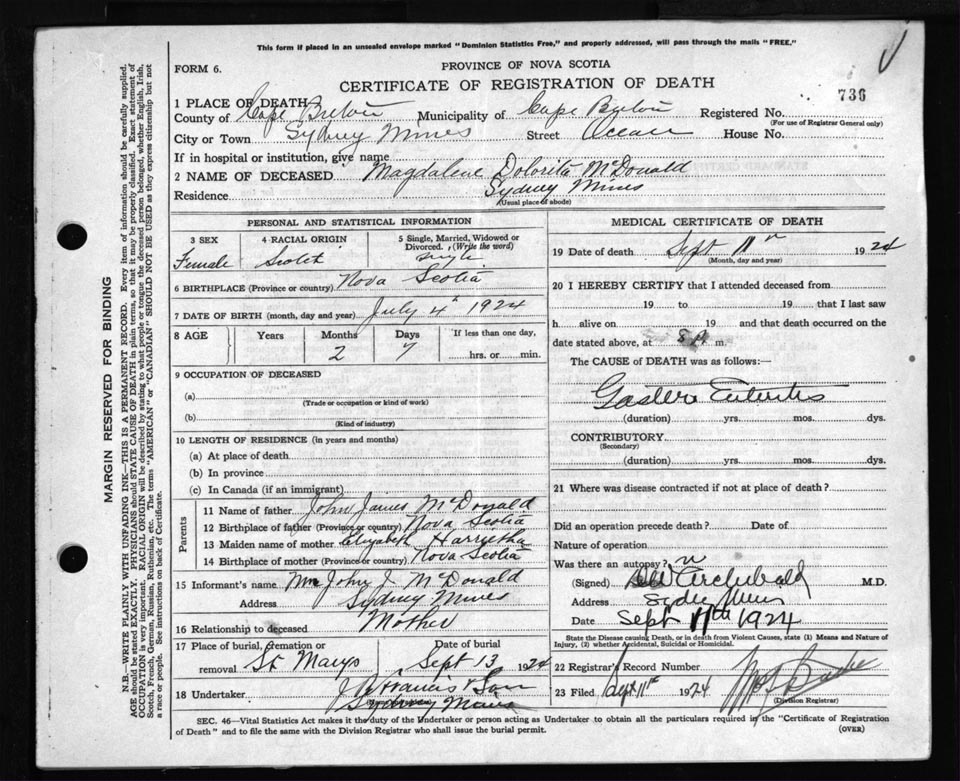 This form if placed in an unsealed envelope marked "Dominion Statistics Free," and properly addressed, will pass through the mails "FREE."
FORM 6.
PROVINCE OF NOVA SCOTIA
CERTIFICATE OF REGISTRATION OF DEATH
736
1 PLACE OF DEATH
County of Cape Breton Municipality of Cape Breton Registered No.
(For use of Registrar General only)
City or Town Sydney Mines Street Ocean House No.
If in hospital or institution, give name
2 NAME OF DECEASED Magdalene Dolorita McDonald
Residence Sydney Mines
(Usual place of abode)
PERSONAL AND STATISTICAL INFORMATION
3 SEX 4 RACIAL ORIGIN 5 Single, Married, Widowed or Divorced. (Write the word)
Female Scotch single
6 BIRTHPLACE (Province or country) Nova Scotia
7 DATE OF BIRTH (month, day and year) July 4th 1924
8 AGE Years Months Days If less than one day,
2 7 hrs. or min.
9 OCCUPATION OF DECEASED
(a)
(Trade or occupation or kind of work)
(b)
(Kind of industry)
10 LENGTH OF RESIDENCE (in years and months)
(a) At place of death
(b) In province
(c) In Canada (if an immigrant)
Parents
11 Name of father John James McDonald
12 Birthplace of father (Province or country) Nova Scotia
13 Maiden name of mother Elizabeth
14 Birthplace of mother (Province or country) Nova Scotia
15 Informant's name Mrs John J McDonald
Address Sydney Mines
16 Relationship to deceased Mother
17 Place of burial, cremation or removal St Marys Date of burial Sept 13 1924
18 Undertaker J A Francis & Son
Sydney Mines
MEDICAL CERTIFICATE OF DEATH
19 Date of death Sept 11th 1924
(Month, day and year)
20 I HEREBY CERTIFY that I attended deceased from
19 to 19 that I last saw
h alive on 19 and that death occurred on the
date stated above, at 8 A m.
The CAUSE of DEATH was as follows:—
Gastero Enteritis
(duration) yrs. mos. dys.
CONTRIBUTORY
(Secondary)
(duration) yrs. mos. dys.
21 Where was disease contracted if not at place of death?
Did an operation precede death? Date of
Nature of operation
Was there an autopsy? n
(Signed) Archibald M.D.
Address Sydney Mines
Date Sept 11th 1924
State the Disease causing Death, or in death from Violent Causes, state (1) Means and Nature of Injury, (2) whether Accidental, Suicidal or Homicidal.
22 Registrar's Record Number
23 Filed Sept 11th 1924
(Division Registrar)
SEC. 46—Vital Statistics Act makes it the duty of the Undertaker or person acting as Undertaker to obtain all the particulars required in the "Certificate of Registration
of Death" and to file the same with the Division Registrar who shall issue the burial permit.
(OVER)
MARGIN RESERVED FOR BINDING
N.B.—WRITE PLAINLY WITH UNFADING INK—THIS IS A PERMANENT RECORD. Every item of information should be carefully supplied.
AGE should be stated EXACTLY. PHYSICIANS should STATE CAUSE OF DEATH in plain terms, so that it may be properly classified. Exact statement of
OCCUPATION is very important. RACIAL ORIGIN will be described by stating to what people or tongue the deceased person belonged, whether English, Irish,
Scotch, French, German, Russian, Ruthenian, etc. The terms "AMERICAN" or "CANADIAN" SHOULD NOT BE USED as they express citizenship but not
a race or people. See instructions on back of Certificate.